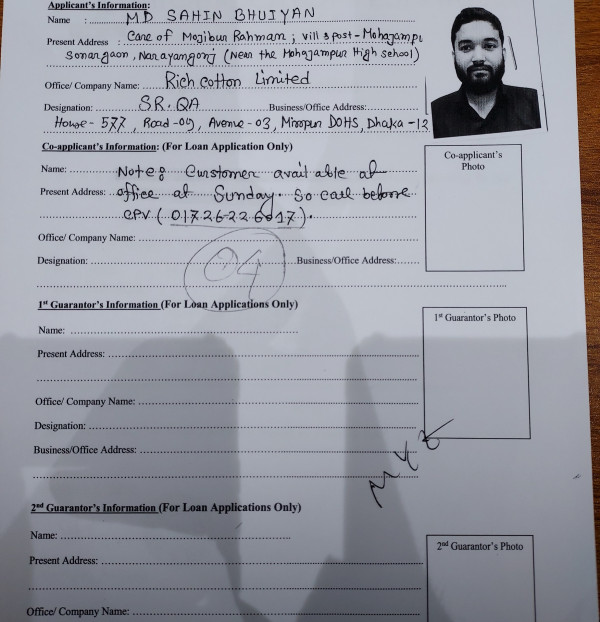 Applicant's Information:
Name : MD SAHIN BHUIYAN
Present Address : Care of Mojibur Rahman; vill & post - Mohajampur
Sonargaon, Narayangonj (Near the Mohajampur High school)
Office/ Company Name: Rich Cotton Limited
Designation: SR. QA Business/Office Address:
House - 577, Road-09, Avenue-03, Mirpur DOHS, Dhaka -12
Co-applicant's Information: (For Loan Application Only)
Co-applicant's
Photo
Name: Note: Curstomer avail able at
Present Address: office at Sunday. So call before
CPV (01726226017).
Office/ Company Name:
Designation: Business/Office Address:
04
1st Guarantor's Information (For Loan Applications Only)
1st Guarantor's Photo
Name:
Present Address:
Office/ Company Name:
Designation:
Business/Office Address:
2nd Guarantor's Information (For Loan Applications Only)
Name:
2nd Guarantor's Photo
Present Address:
Office/ Company Name: